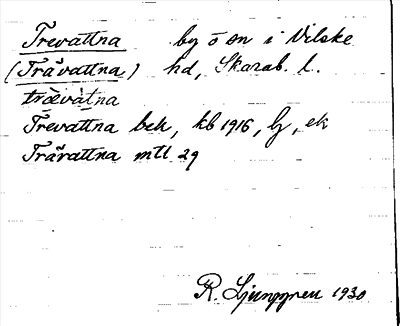 Trevattna by o sn i Vilske
(Trävattna) hd, Skarab. l.
trævàtna
Trevattna bek, kb 1916, lj, ek
Trävattna mtl 29
R. Ljunggren 1930